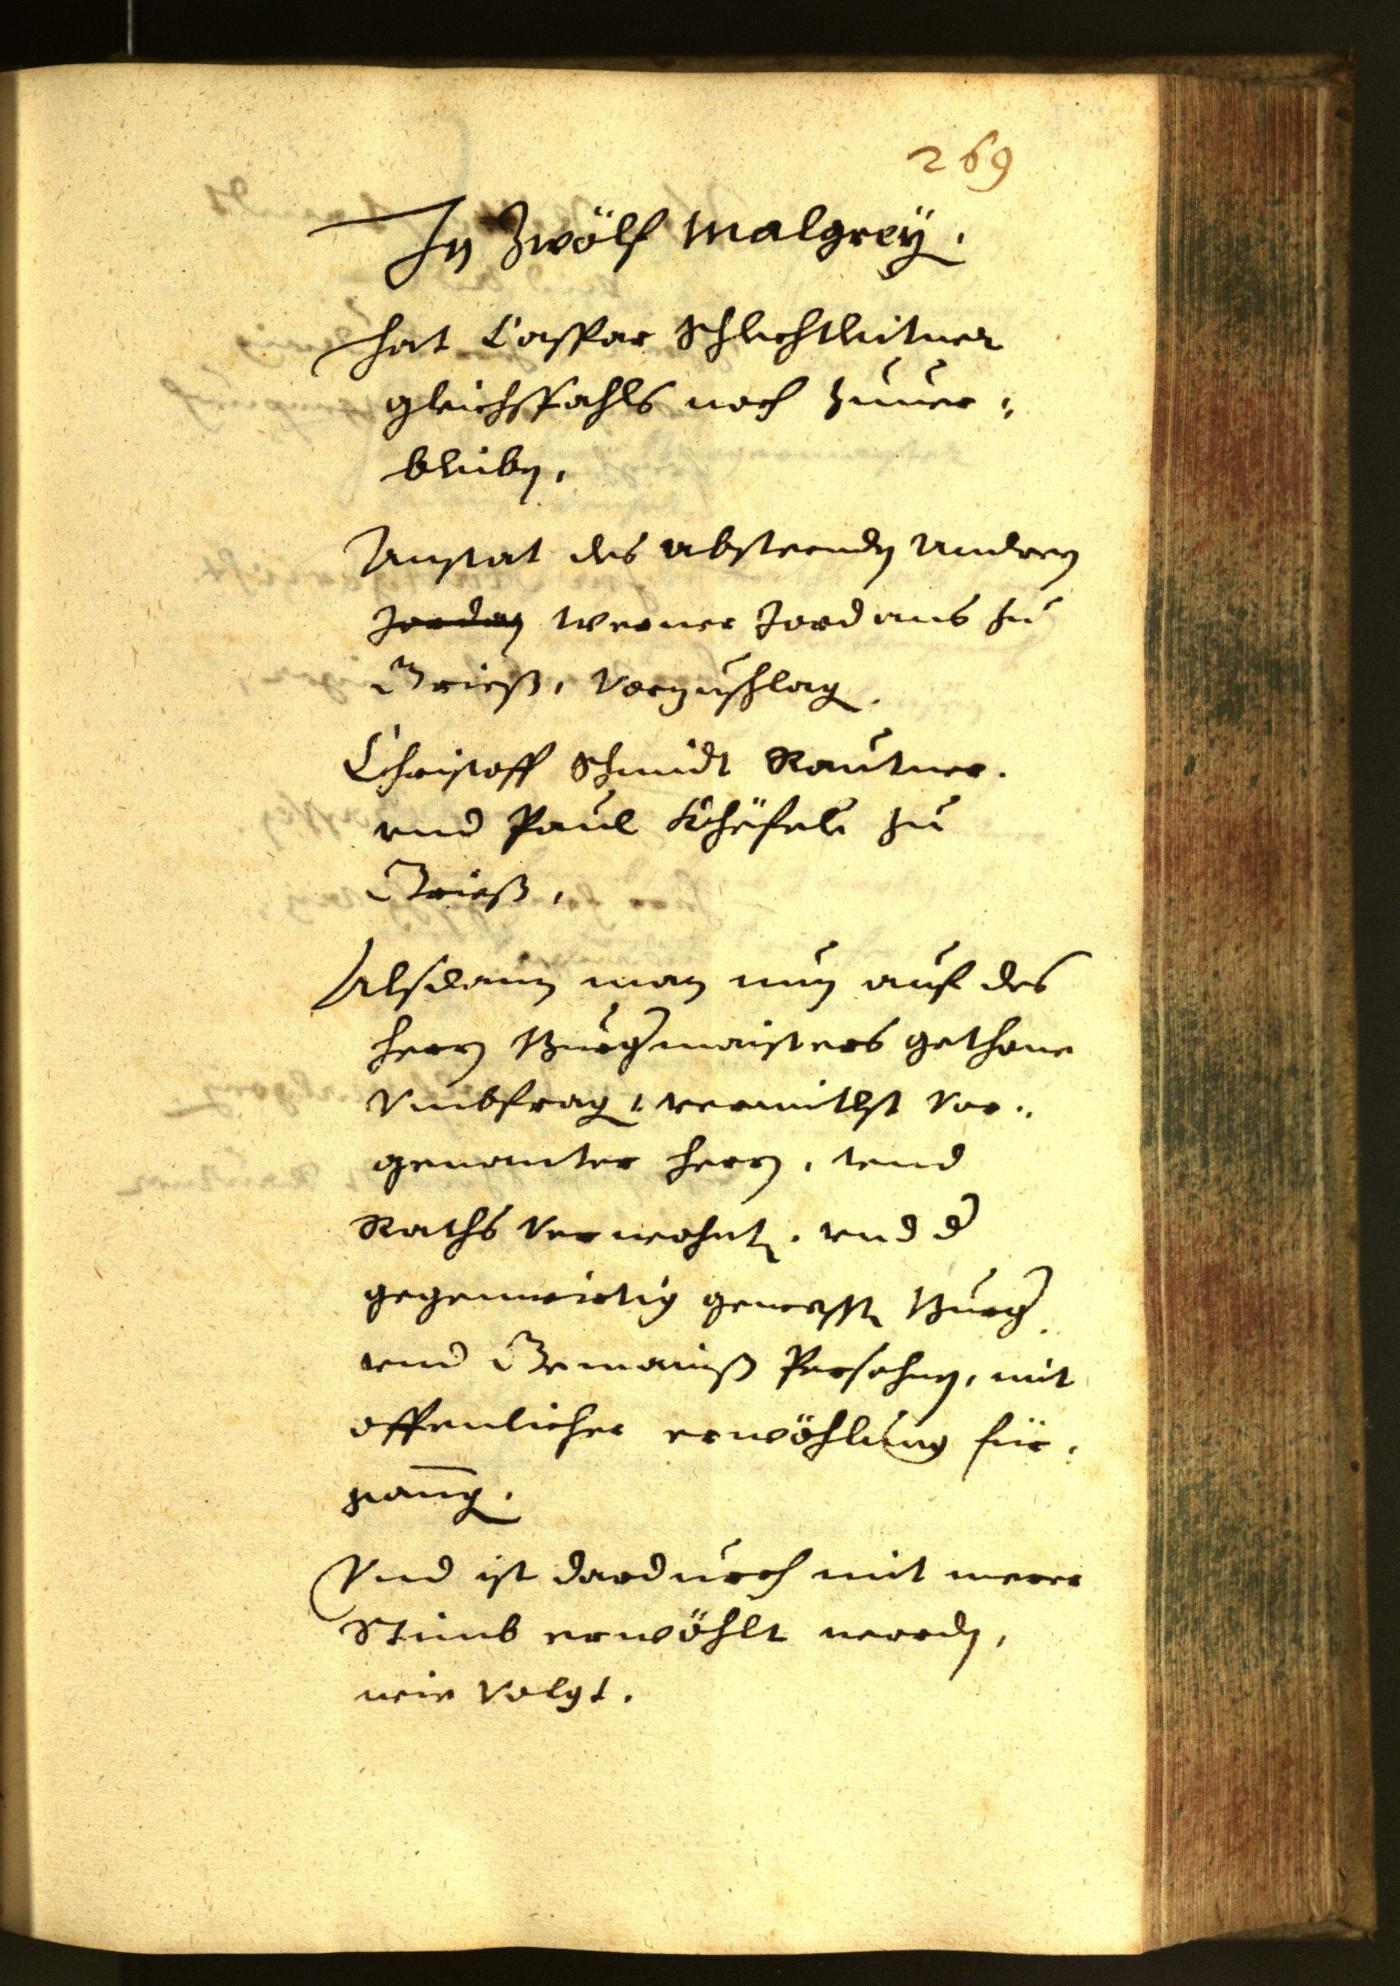 269
In Zwölf Malgrey.
hat Caspar Schlechtleitner
gleichsfahls noch zuuer=
bleiben.
Anstat des abstereden Andreen
Jordan Werner Jordans zu
Grieß, Vorzuschlag.
Christoff Schmidt Rautner.
vnd Paul Khäfele zu
Grieß,
Alsdann man nun auf des
herrn Burgermaisters gethane
Vmbfrag, vermitlst Vor=
genanter herrn, vnd
Raths Verwohnten. vnd der
gegenwirtig gewesten Burger
vnd Gemainß Persohnen, mit
offenlicher erwöhlung für=
ganng.
Vnd ist dardurch mit merer
Stimb erwöhlt worden,
wie Volgt.